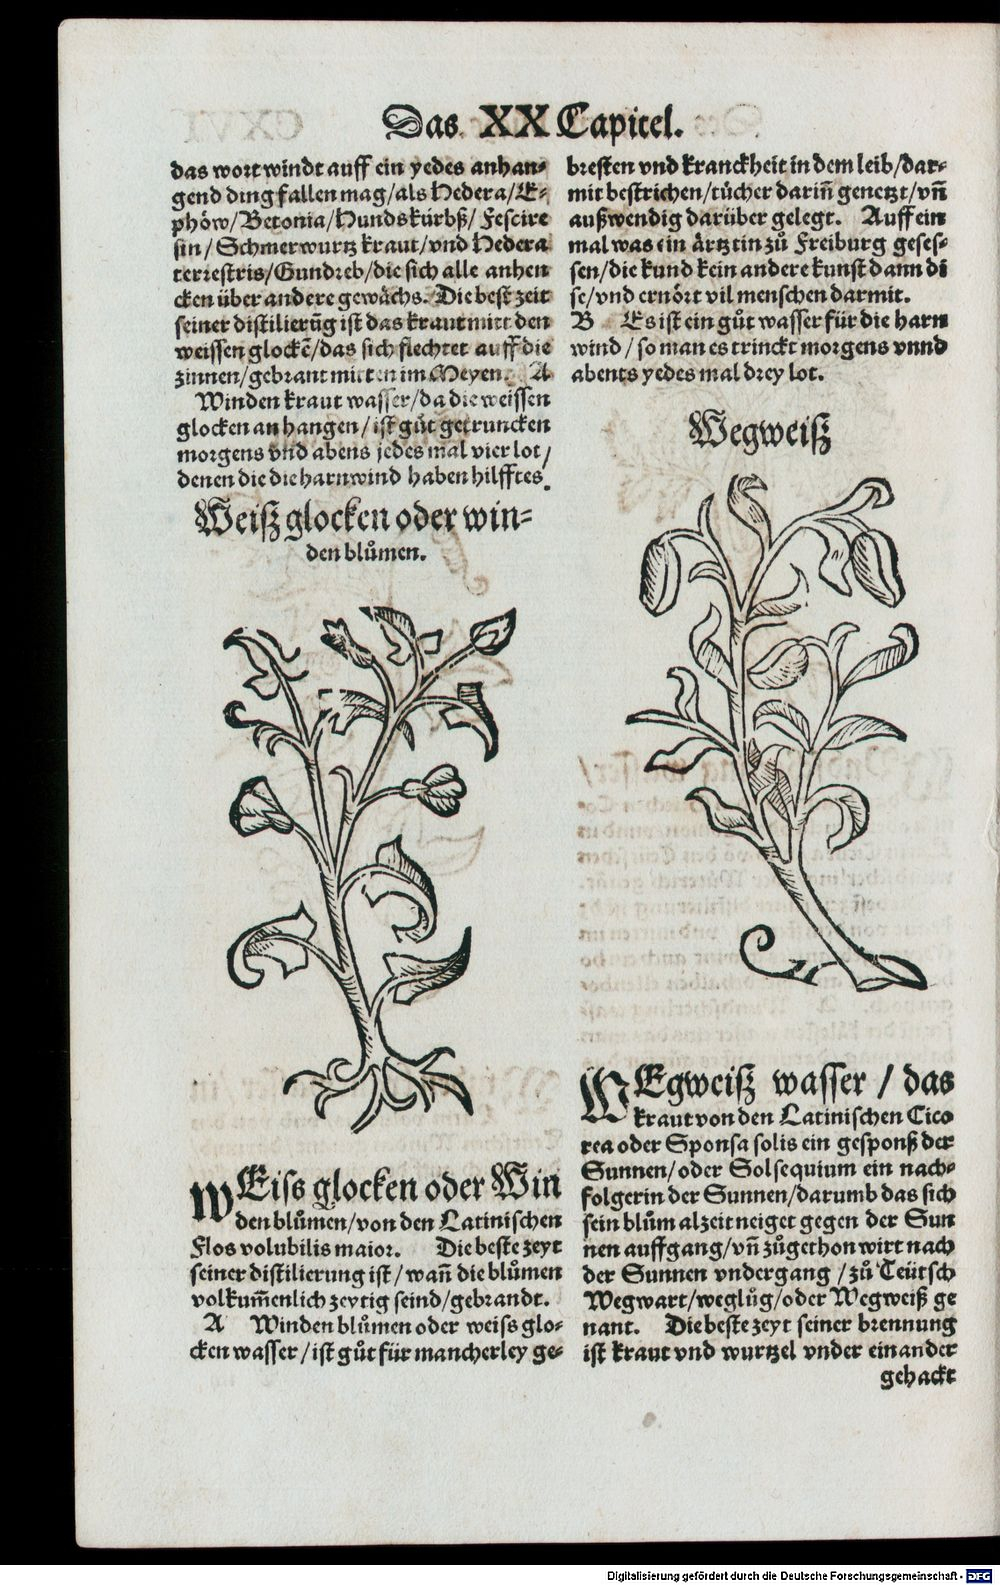 Das XX Capitel.
das wort windt auff ein yedes anhan-
gend ding fallen mag/als Hedera/E-
phöw/Betonia/Hundskürbß/Fescire
sin/Schmerwurtz kraut/vnd Hedera
terrestris/Gundreb/die sich alle anhen
cken über andere gewächs. Die best zeit
seiner distilierũg ist das kraut mitt den
weissen glockẽ/das sich flechtet auff die
zinnen/gebrant mitten im Meyen. A
Winden kraut wasser/da die weissen
glocken an hangen/ist gůt getruncken
morgens vnd abens jedes mal vier lot/
denen die die harnwind haben hilfft es.
Weiß glocken oder win-
den blůmen.
WEiss glocken oder Win
den blůmen/von den Latinischen
Flos volubilis maior. Die beste zeyt
seiner distilierung ist/wañ die blůmen
volkum̃enlich zeytig seind/gebrandt.
A Winden blůmen oder weiss glo-
cken wasser/ist gůt für mancherley ge-
bresten vnd kranckheit in dem leib/dar-
mit bestrichen/tůcher dariñ genetzt/vñ
außwendig darüber gelegt. Auff ein
mal was ein ärtztin zů Freiburg geses-
sen/die kund kein andere kunst dann di
se/vnd ernört vil menschen darmit.
B Es ist ein gůt wasser für die harn
wind/so man es trinckt morgens vnnd
abents yedes mal drey lot.
Wegweiß
WEgweiß wasser/das
kraut von den Latinischen Cico
rea oder Sponsa solis ein gesponß der
Sunnen/oder Solsequium ein nach-
folgerin der Sunnen/darumb das sich
sein blům alzeit neiget gegen der Sun
nen auffgang/vñ zůgethon wirt nach
der Sunnen vndergang/zů Teütsch
Wegwart/weglůg/oder Wegweiß ge
nant. Die beste zeyt seiner brennung
ist kraut vnd wurtzel vnder einander
gehackt
Digitalisierung gefördert durch die Deutsche Forschungsgemeinschaft - DFG